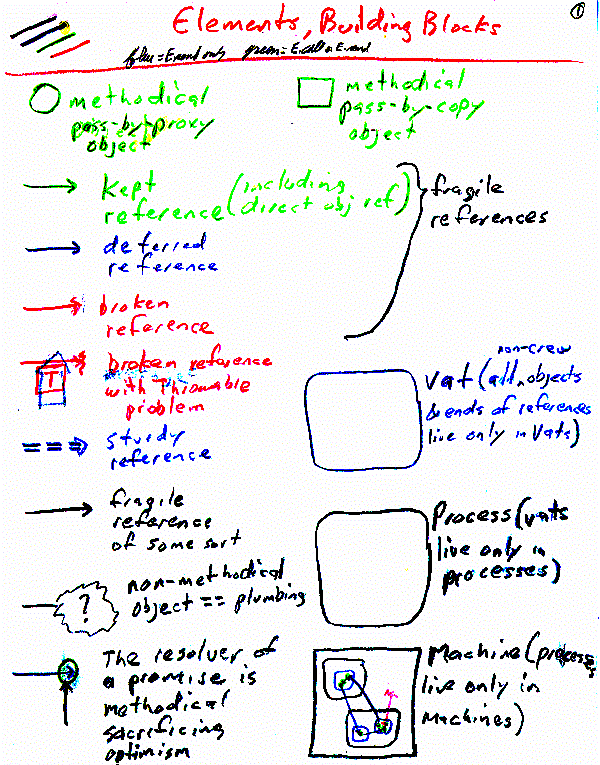 Elements, Building Blocks
1
blue = E-send only green = E-call or E-send
methodical
pass-by-proxy
object
methodical
pass-by-copy
object
kept
reference (including
direct obj ref)
fragile
references
deferred
reference
broken
reference
broken reference
with Throwable
problem
T
non-crew
Vat (all objects
& ends of references
live only in Vats)
sturdy
reference
fragile
reference
of some sort
Process (vats
live only in
processes)
?
non-methodical
object == plumbing
The resolver of
a promise is
methodical
sacrificing
optimism
Machine (process
live only in
Machines)